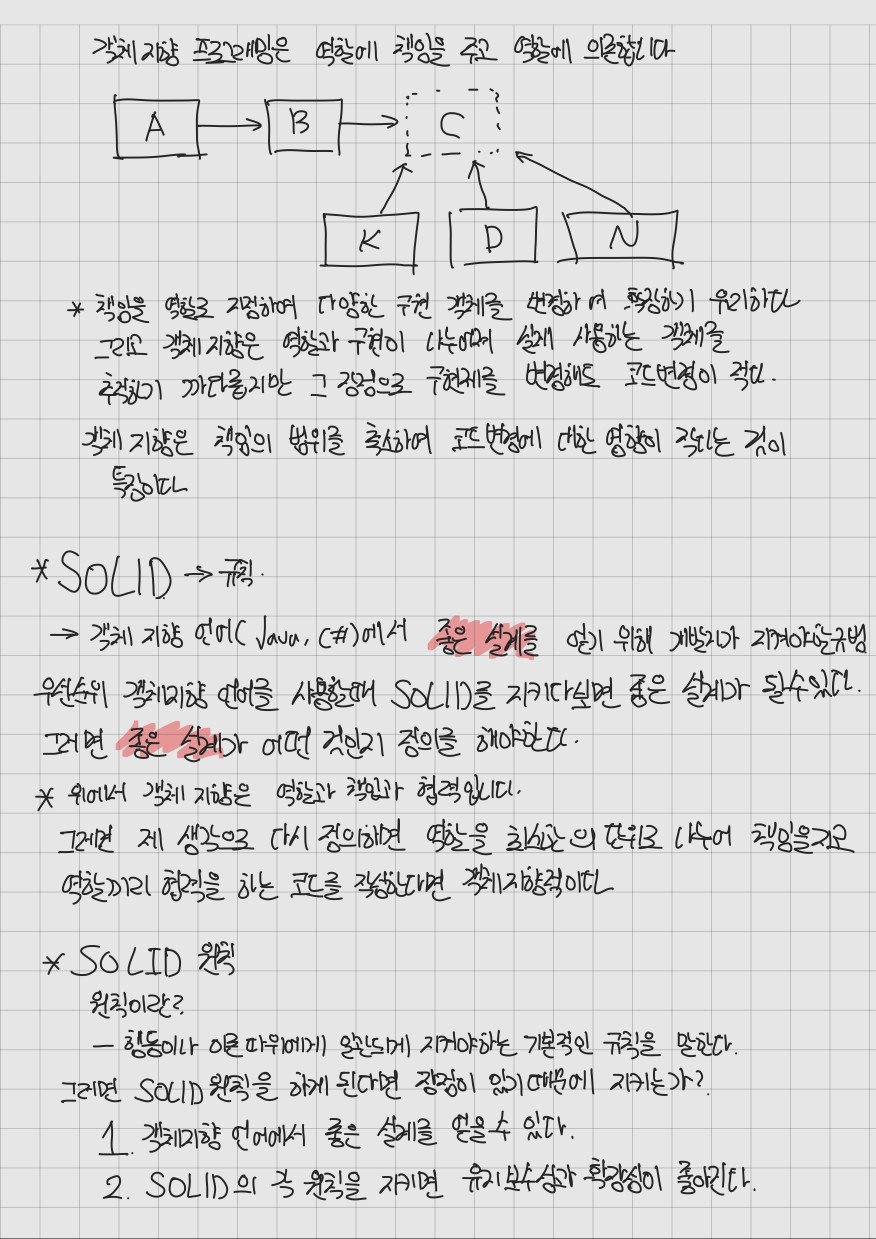 객체 지향 프로그래밍은 역할에 책임을 주고 역할에 의존합니다
A B C
K D N
* 책임을 역할로 지정하여 다양한 구현 객체를 변경하여 확장하기 유리하다
그리고 객체 지향은 역할과 구현이 나누어져 실제 사용하는 객체를
추적하기 까다롭지만 그 장점으로 구현체를 변경해도 코드변경이 적다.
객체 지향은 책임의 범위를 축소하여 코드변경에 대한 영향이 작다는 것이
특징이다
* SOLID → 규칙.
→ 객체 지향 언어(Java, C#)에서 좋은 설계를 얻기 위해 개발자가 지켜야할규범
우선순위 객체지향 언어를 사용할때 SOLID를 지키다보면 좋은 설계가 될수있다.
그러면 좋은 설계가 어떤 것인지 정의를 해야한다.
* 위에서 객체 지향은 역할과 책임과 협력입니다.
그러면 제 생각으로 다시 정의하면 역할을 최소한의 단위로 나누어 책임을지고
역할끼리 협력을 하는 코드를 작성한다면 객체지향적이다
* SOLID 원칙
원칙이란?
— 행동이나 이론 따위에게 일관되게 지켜야하는 기본적인 규칙을 말한다.
그러면 SOLID 원칙을 하게 된다면 장점이 있기때문에 지키는가?
1. 객체지향 언어에서 좋은 설계를 얻을수 있다.
2. SOLID의 각 원칙을 지키면 유지보수성과 확장성이 좋아진다.